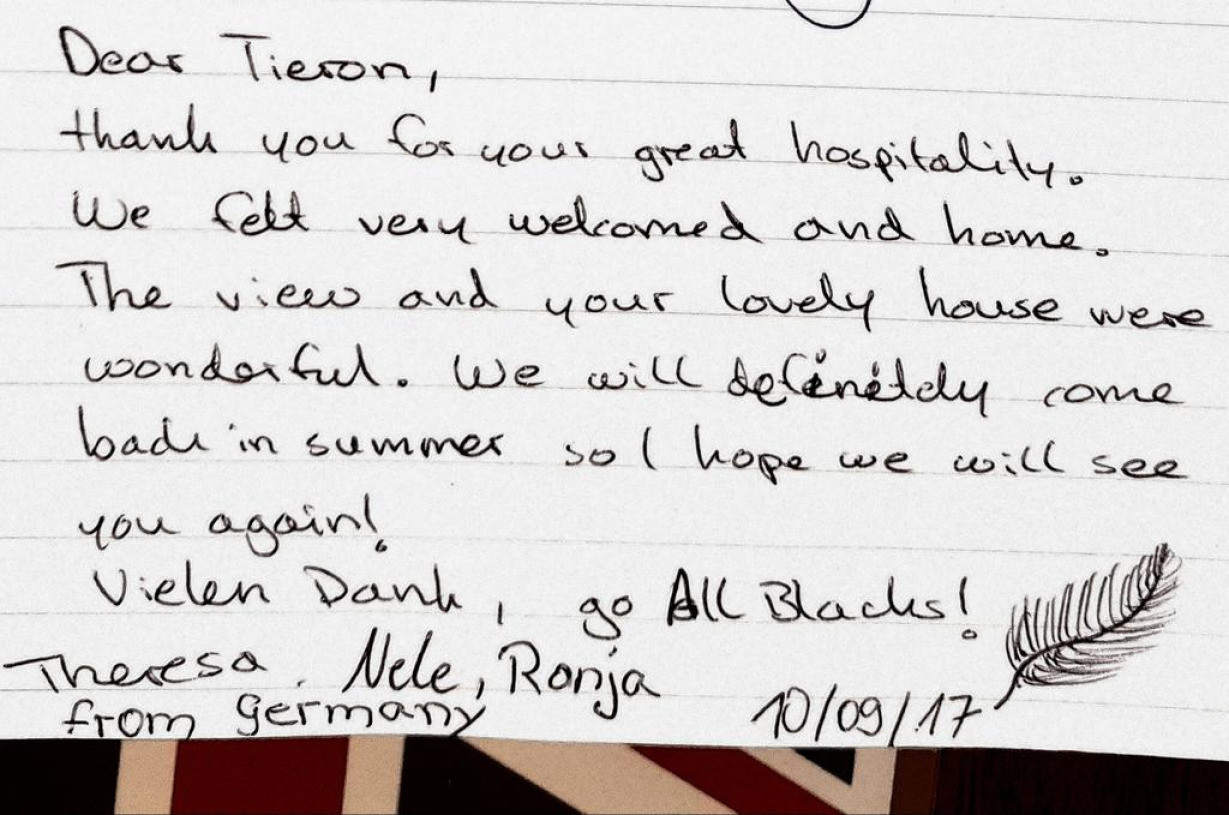 Dear Tieron,
thank you for your great hospitality.
We felt very welcomed and home.
The view and your lovely house were
wonderful. We will definitely come
back in summer so I hope we will see
you again!
Vielen Dank, go All Blacks!
Theresa, Nele, Ronja
from Germany 10/09/17